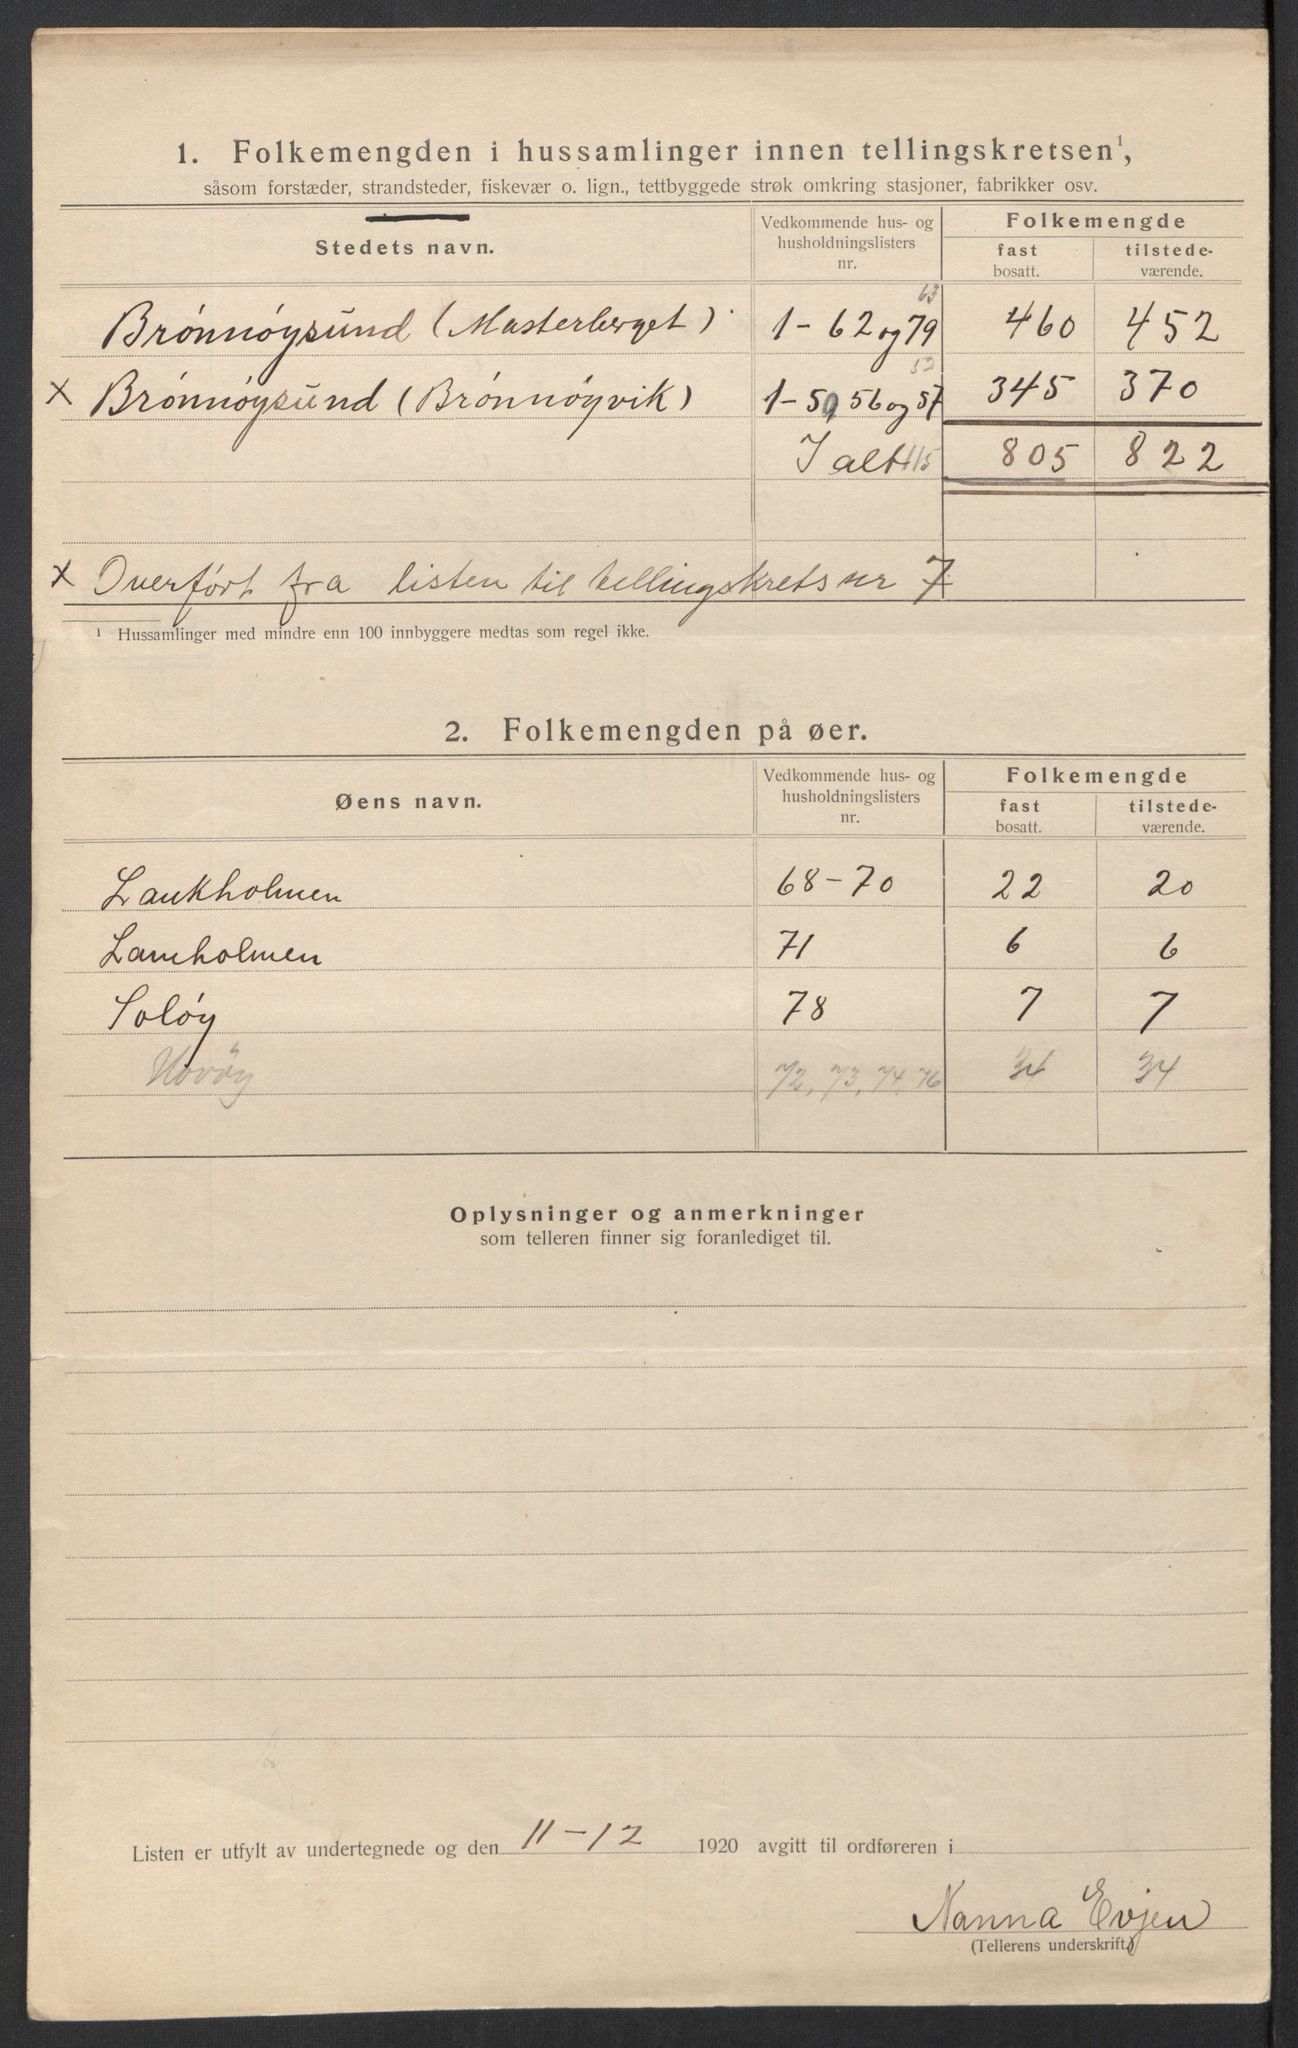 1. Folkemengden i hussamlinger innen tellingskretsen¹,
såsom forstæder, strandsteder, fiskevær o. lign., tettbyggede strøk omkring stasjoner, fabrikker osv.
Stedets navn. Vedkommende hus- og husholdningslisters nr. Folkemengde fast bosatt. tilstede-værende.
63
Brønnøysund (Mosterberget) 1-62 og 79 460 452
52
x Brønnøysund (Brønnøyvik) 1-50, 56 og 57 345 370
I alt 115 805 822
x Overført fra listen til tellingskrets nr 7
¹ Hussamlinger med mindre enn 100 innbyggere medtas som regel ikke.
2. Folkemengden på øer.
Øens navn. Vedkommende hus- og husholdningslisters nr. Folkemengde fast bosatt. tilstede-værende.
68-70 22 20
71 6 6
Soløy 78 7 7
Hovøy 72, 73, 74, 76 34 34
Oplysninger og anmerkninger
som telleren finner sig foranlediget til.
Listen er utfylt av undertegnede og den 11-12 1920 avgitt til ordføreren i
Nanna Evjen
(Tellerens underskrift.)